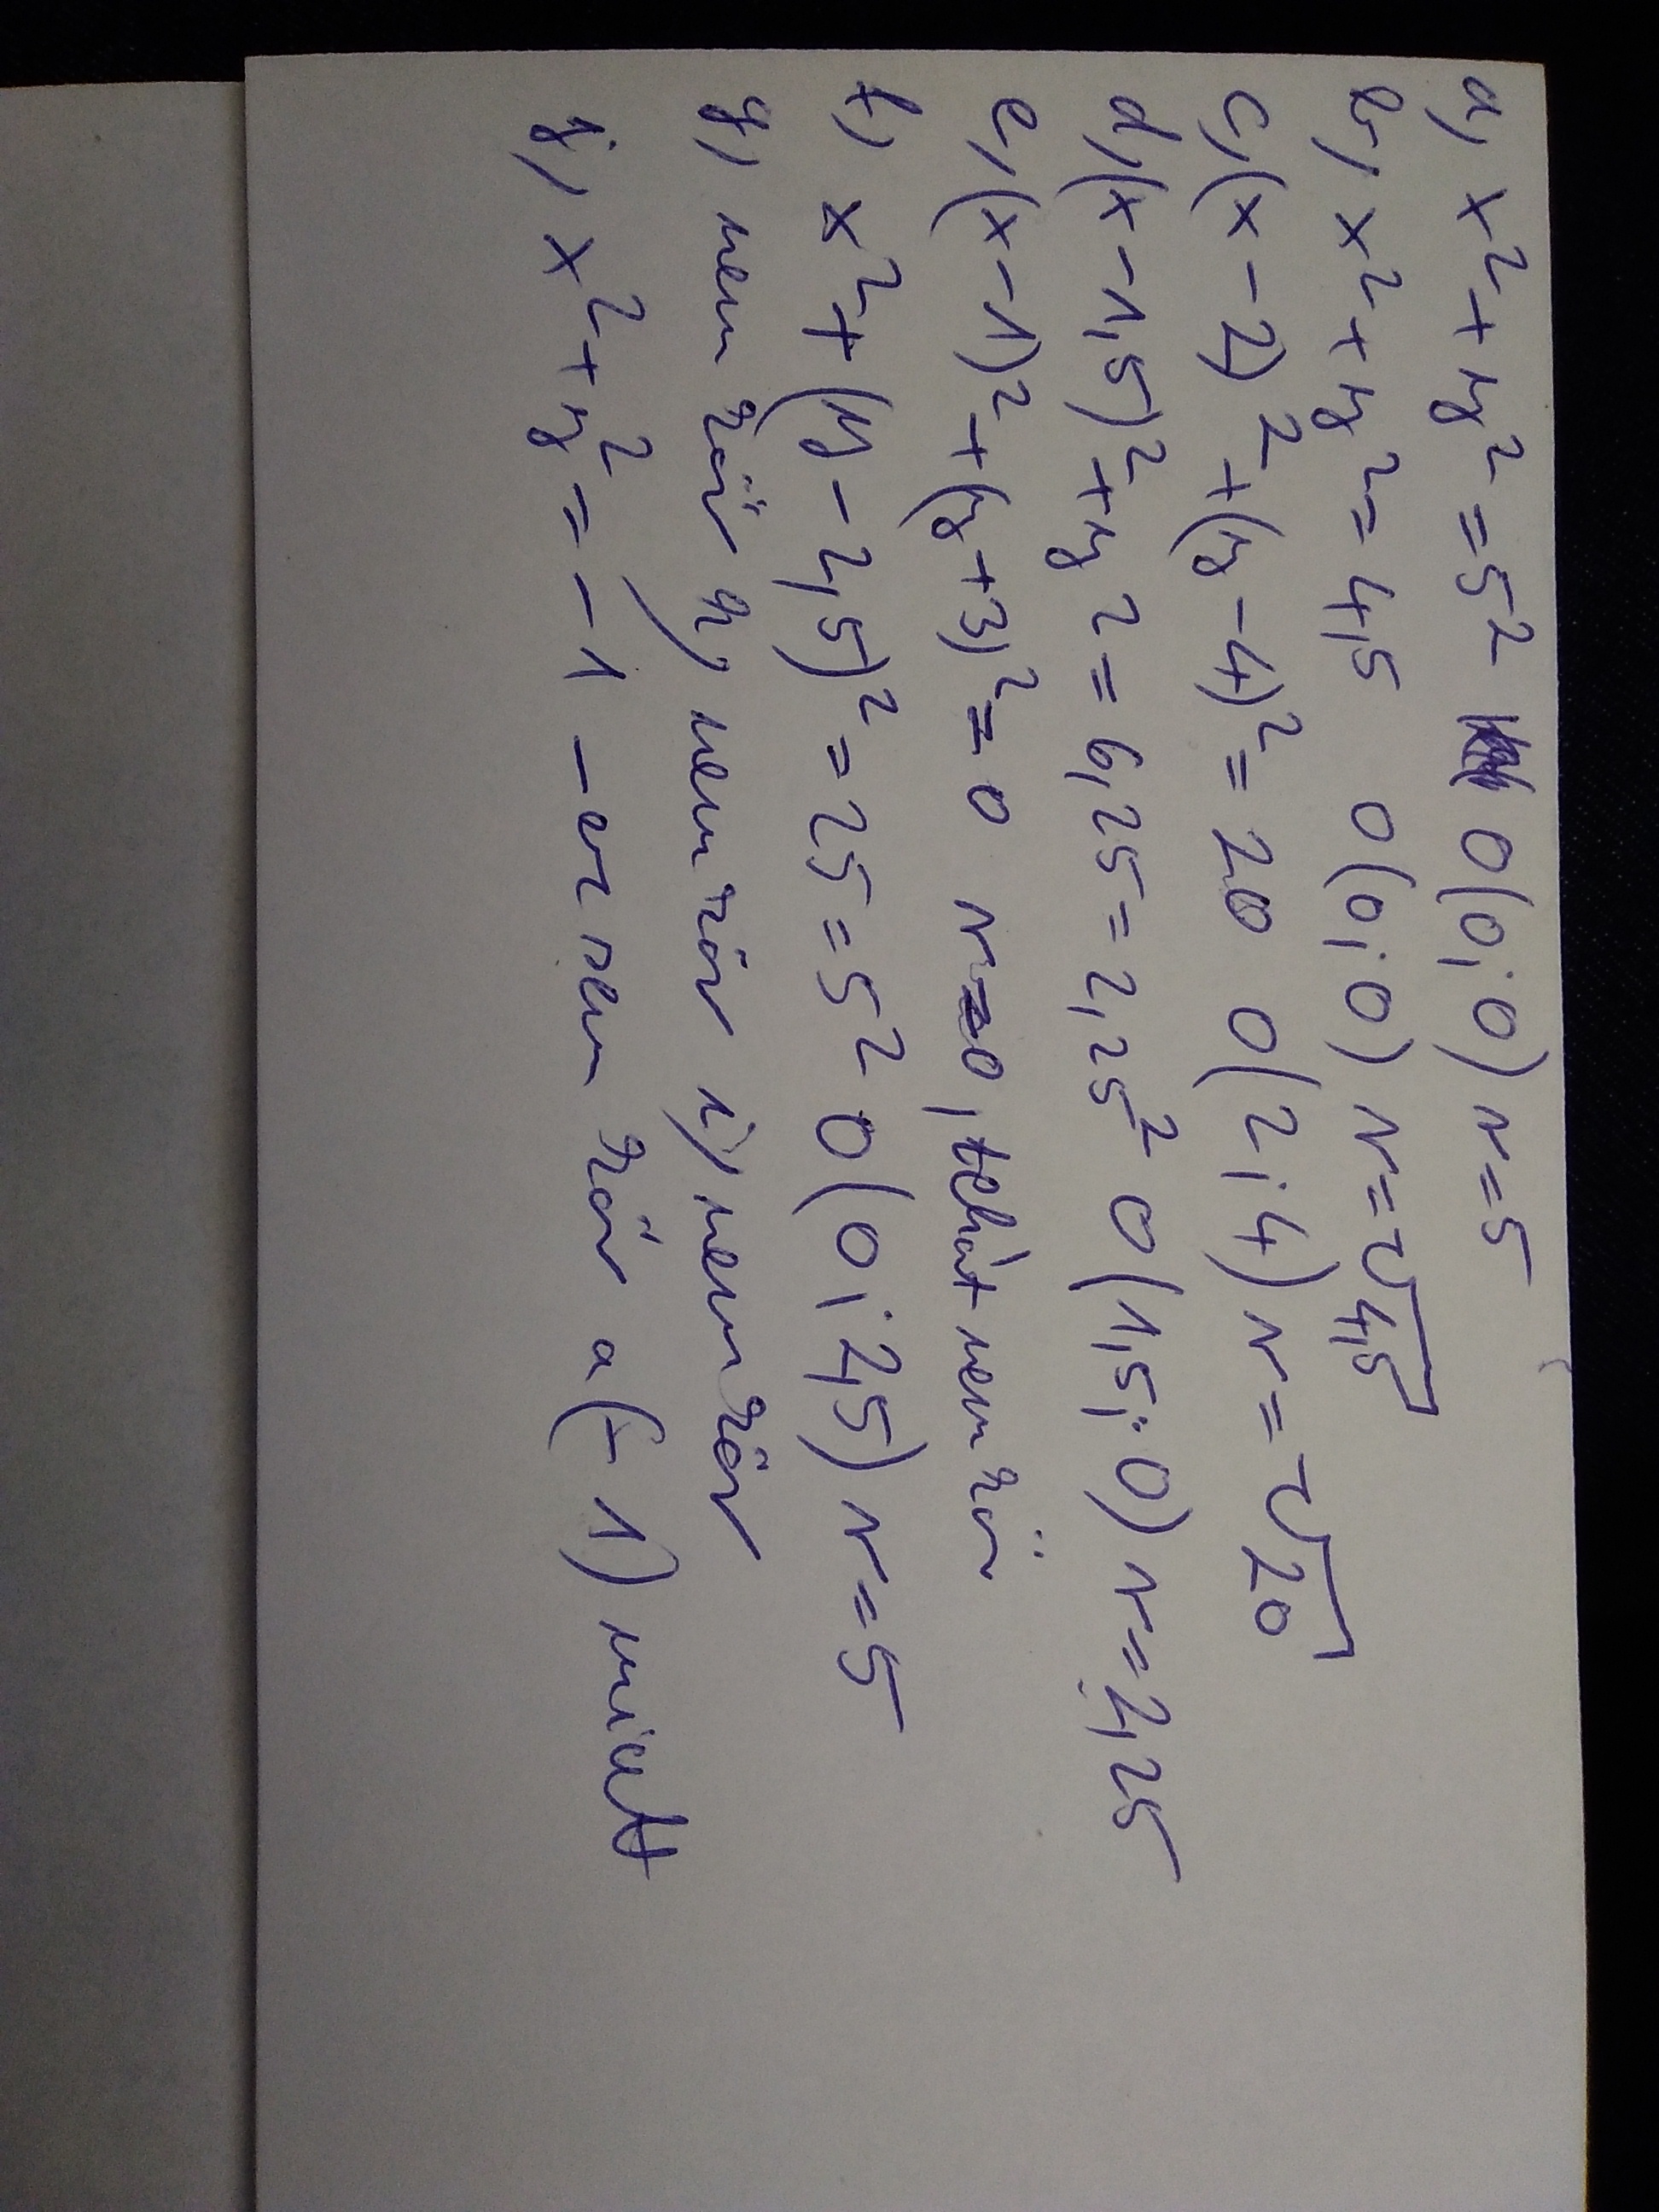 a, x²+y²=5² O(0;0) r=5
b, x²+y²=4,5 O(0;0) r=√4,5
c, (x-2)²+(y-4)²=20 O(2;4) r=√20
d, (x-1,5)²+y²=6,25=2,25² O(1,5;0) r=2,25
e, (x-1)²+(y+3)²=0 r=0, tehát nem kör
f, x²+(y-2,5)²=25=5² O(0;2,5) r=5
g, nem kör h, nem kör i, nem kör
j, x²+y²=-1 -ez sem kör a (-1) miatt